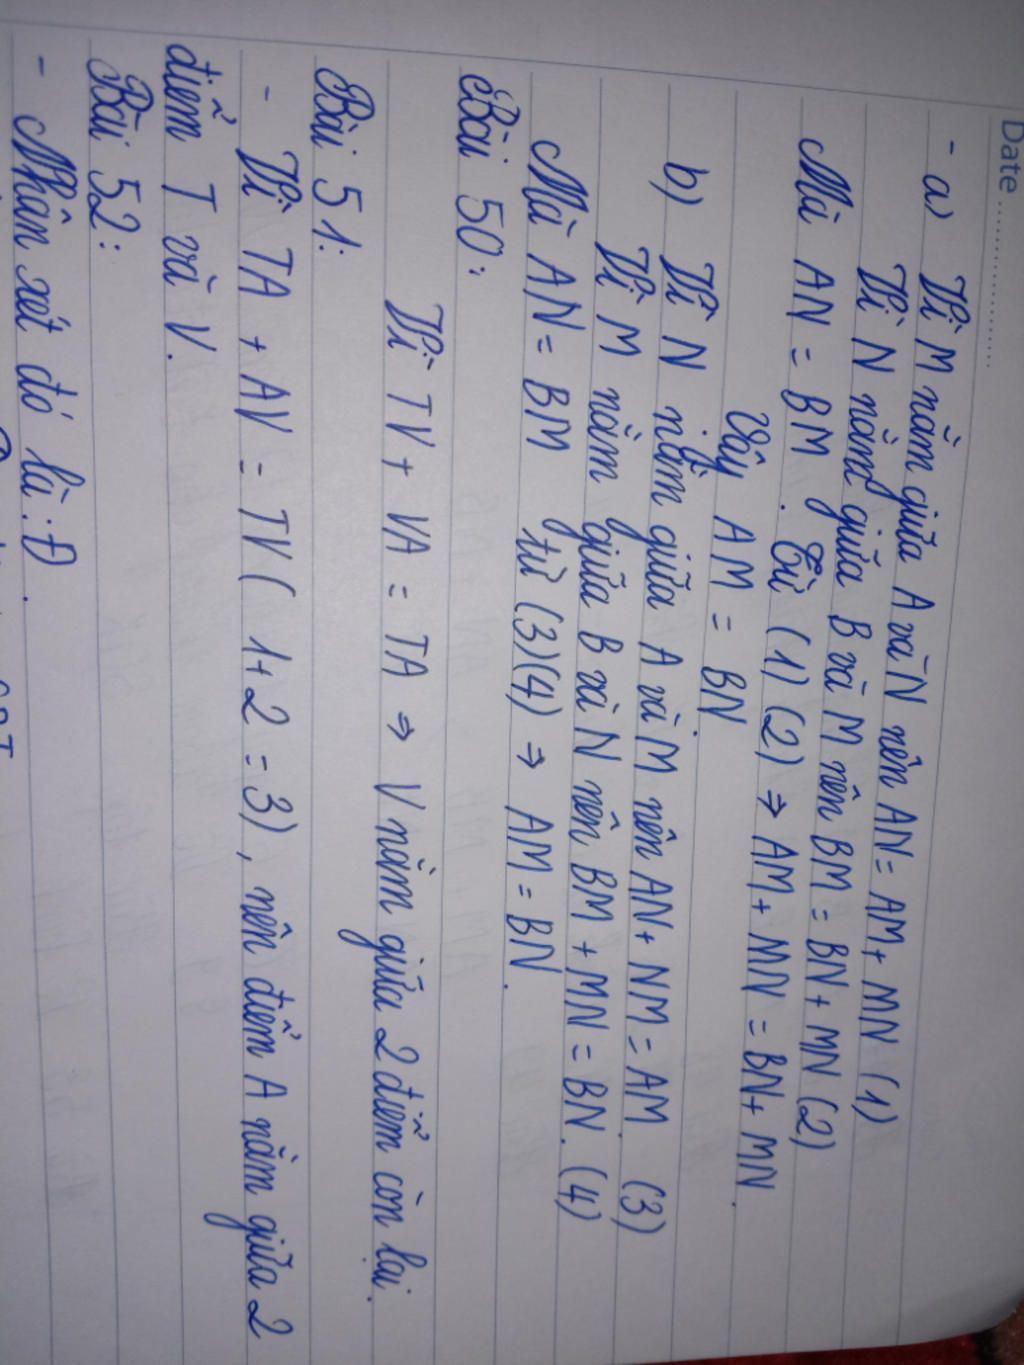 Date ....................
- a) Vì M nằm giữa A và N nên AN = AM + MN (1)
Vì N nằm giữa B và M nên BM = BN + MN (2)
Mà AN = BM. Từ (1) (2) ⇒ AM + MN = BN + MN.
Vậy AM = BN.
b) Vì N nằm giữa A và M nên AN + NM = AM (3)
Vì M nằm giữa B và N nên BM + MN = BN. (4)
Mà AN = BM từ (3)(4) ⇒ AM = BN.
Bài 50:
Vì TV + VA = TA ⇒ V nằm giữa 2 điểm còn lại.
Bài 51:
- Vì TA + AV = TV (1+2 = 3), nên điểm A nằm giữa 2
điểm T và V.
Bài 52:
- Nhận xét đó là: Đ.